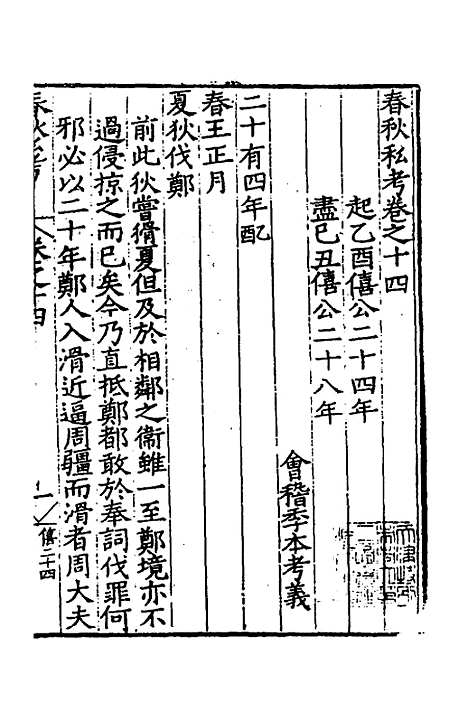 春秋私考卷之十四
起乙酉僖公二十四年
盡己丑僖公二十八年
會稽季本考義
二十有四年乙酉
春王正月
夏狄伐鄭
前此狄嘗猾夏但及於相鄰之衞雖一至鄭境亦不
過侵掠之而已矣今乃直抵鄭都敢於奉詞伐罪何
邪必以二十年鄭人入滑近逼周疆而滑者周大夫
春秋私考
卷之十四
一
僖二十四